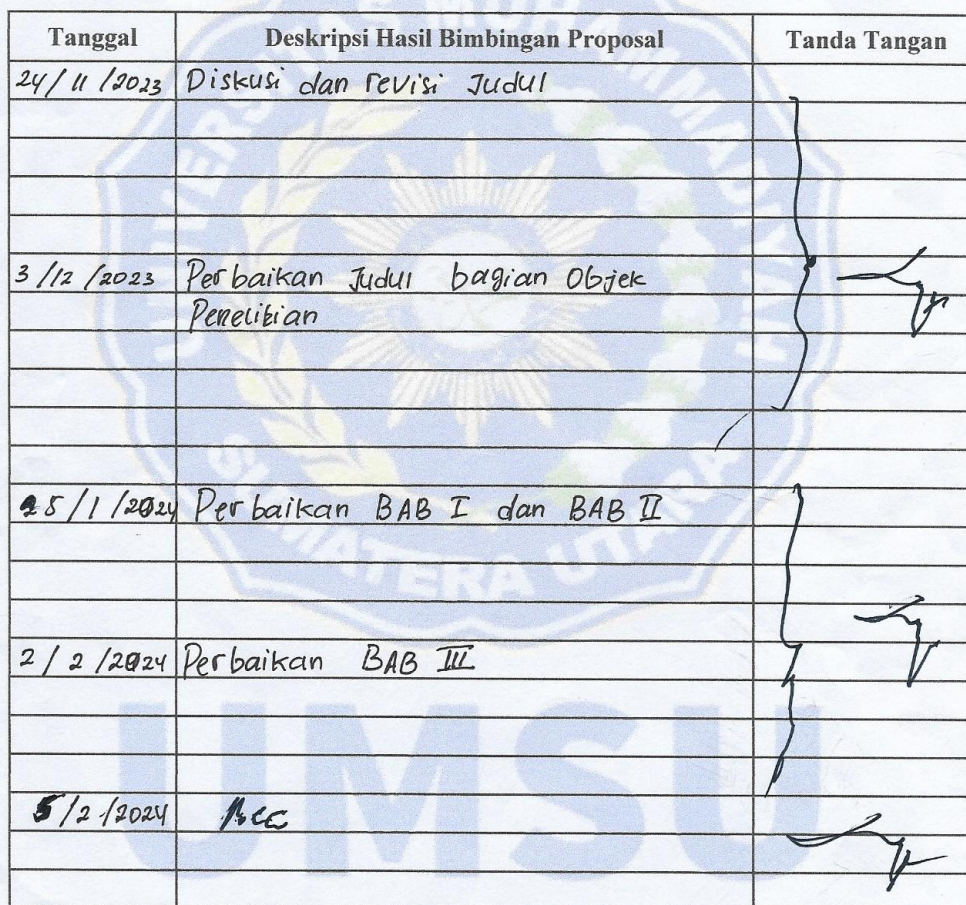 Tanggal Deskripsi Hasil Bimbingan Proposal Tanda Tangan
24/11/2023 Diskusi dan revisi Judul
3/12/2023 Perbaikan Judul bagian Objek
Penelitian
25/1/2024 Perbaikan BAB I dan BAB II
2/2/2024 Perbaikan BAB III
5/2/2024 Acc
UNIVERSITAS MUHAMMADIYAH
SUMATERA UTARA
UMSU